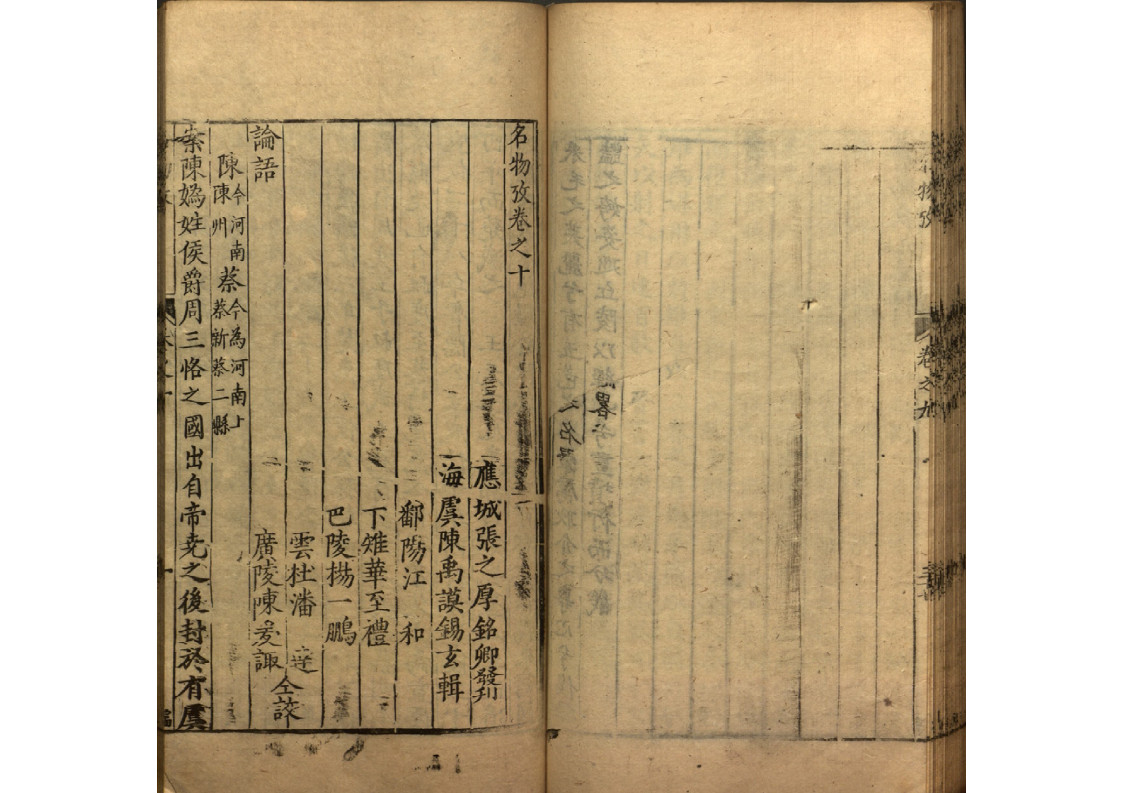 卷之九
名物攷卷之十
應城張之厚銘卿發刋
海虞陳禹謨錫玄輯
鄱陽江 和
下雉華至禮
巴陵楊一鵬
雲杜潘
廣陵陳爰諏
仝談
論語
陳今河南陳州蔡今為河南上蔡新蔡二縣
案陳媯姓侯爵周三恪之國出自帝堯之後封於有虞